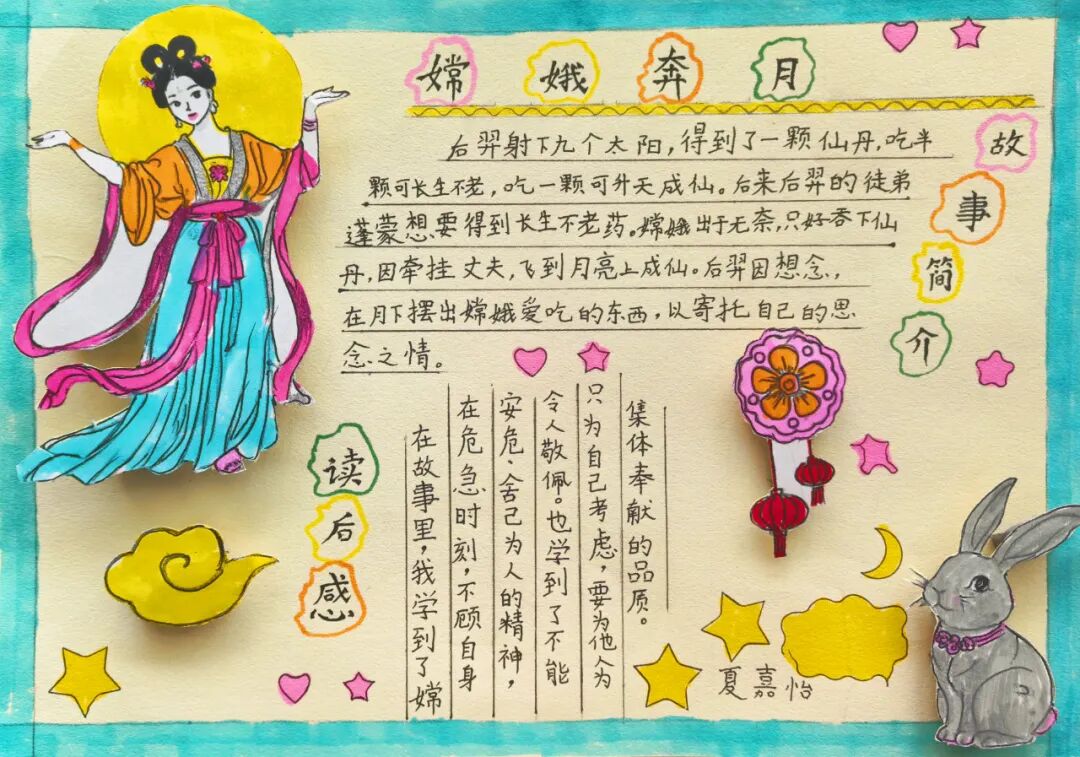 嫦娥奔月
故事简介
后羿射下九个太阳，得到了一颗仙丹，吃半
颗可长生不老，吃一颗可升天成仙。后来后羿的徒弟
蓬蒙想要得到长生不老药。嫦娥出于无奈，只好吞下仙
丹，因牵挂丈夫，飞到月亮上成仙。后羿因想念，
在月下摆出嫦娥爱吃的东西，以寄托自己的思
念之情。
读后感
在故事里，我学到了嫦
在危急时刻，不顾自身
安危、舍己为人的精神，
令人敬佩。也学到了不能
只为自己考虑，要为他人为
集体奉献的品质。
夏嘉怡